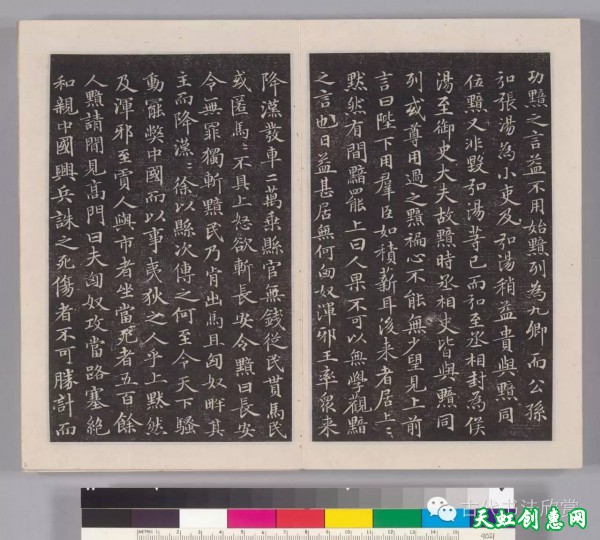 功黯之言益不用始黯列為九卿而公孫
弘張湯為小吏及弘湯稍益貴與黯同
位黯又非毀弘湯等已而弘至丞相封為侯
湯至御史大夫故黯時丞相史皆與黯同
列或尊用過之黯褊心不能無少望見上前
言曰陛下用羣臣如積薪耳後来者居上〻
黙然有間黯罷上曰人果不可以無學觀黯
之言也日益甚居無何匈奴渾邪王率衆来
降漢發車二萬乘縣官無錢從民貰馬民
或匿馬〻不具上怒欲斬長安令黯曰長安
令無罪獨斬黯民乃肯出馬且匈奴畔其
主而降漢〻徐以縣次傳之何至令天下騷
動罷弊中國而以事夷狄之人乎上黙然
及渾邪至賈人與市者坐當死者五百餘
人黯請間見高門曰夫匈奴攻當路塞絶
和親中國興兵誅之死傷者不可勝計而
古代书法欣赏
天虹创意网